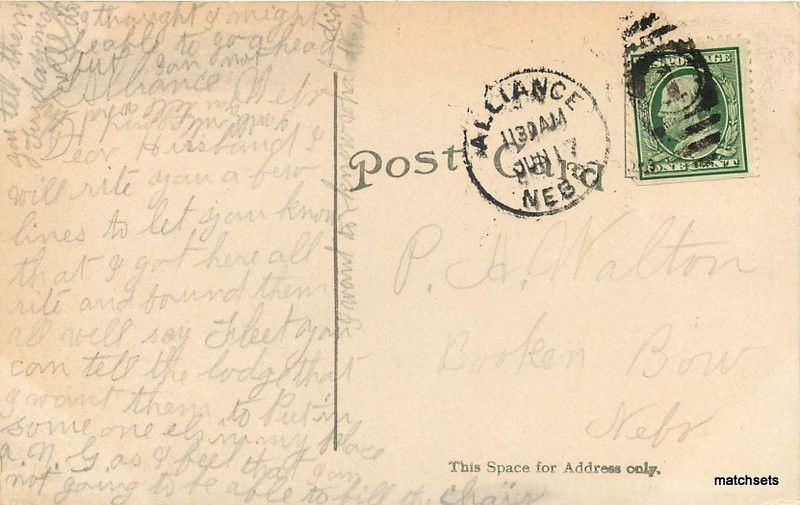 I thought I might
be able to go ahead
but I can not
Alliance Neb
Dear Husband I
will rite you a few
lines to let you know
that I got here all
rite and found them
all well say Fleet you
can tell the lodge that
I want them to Put in
some one els in my place
a N. G. as I feel that I am
not going to be able to fill the chair
you tell them
I want to know
Post Card
ALLIANCE
1130 AM
JUN 17
NEB
U.S. POSTAGE
ONE CENT
P. H. Walton
Broken Bow
Nebr
This Space for Address only.
matchsets